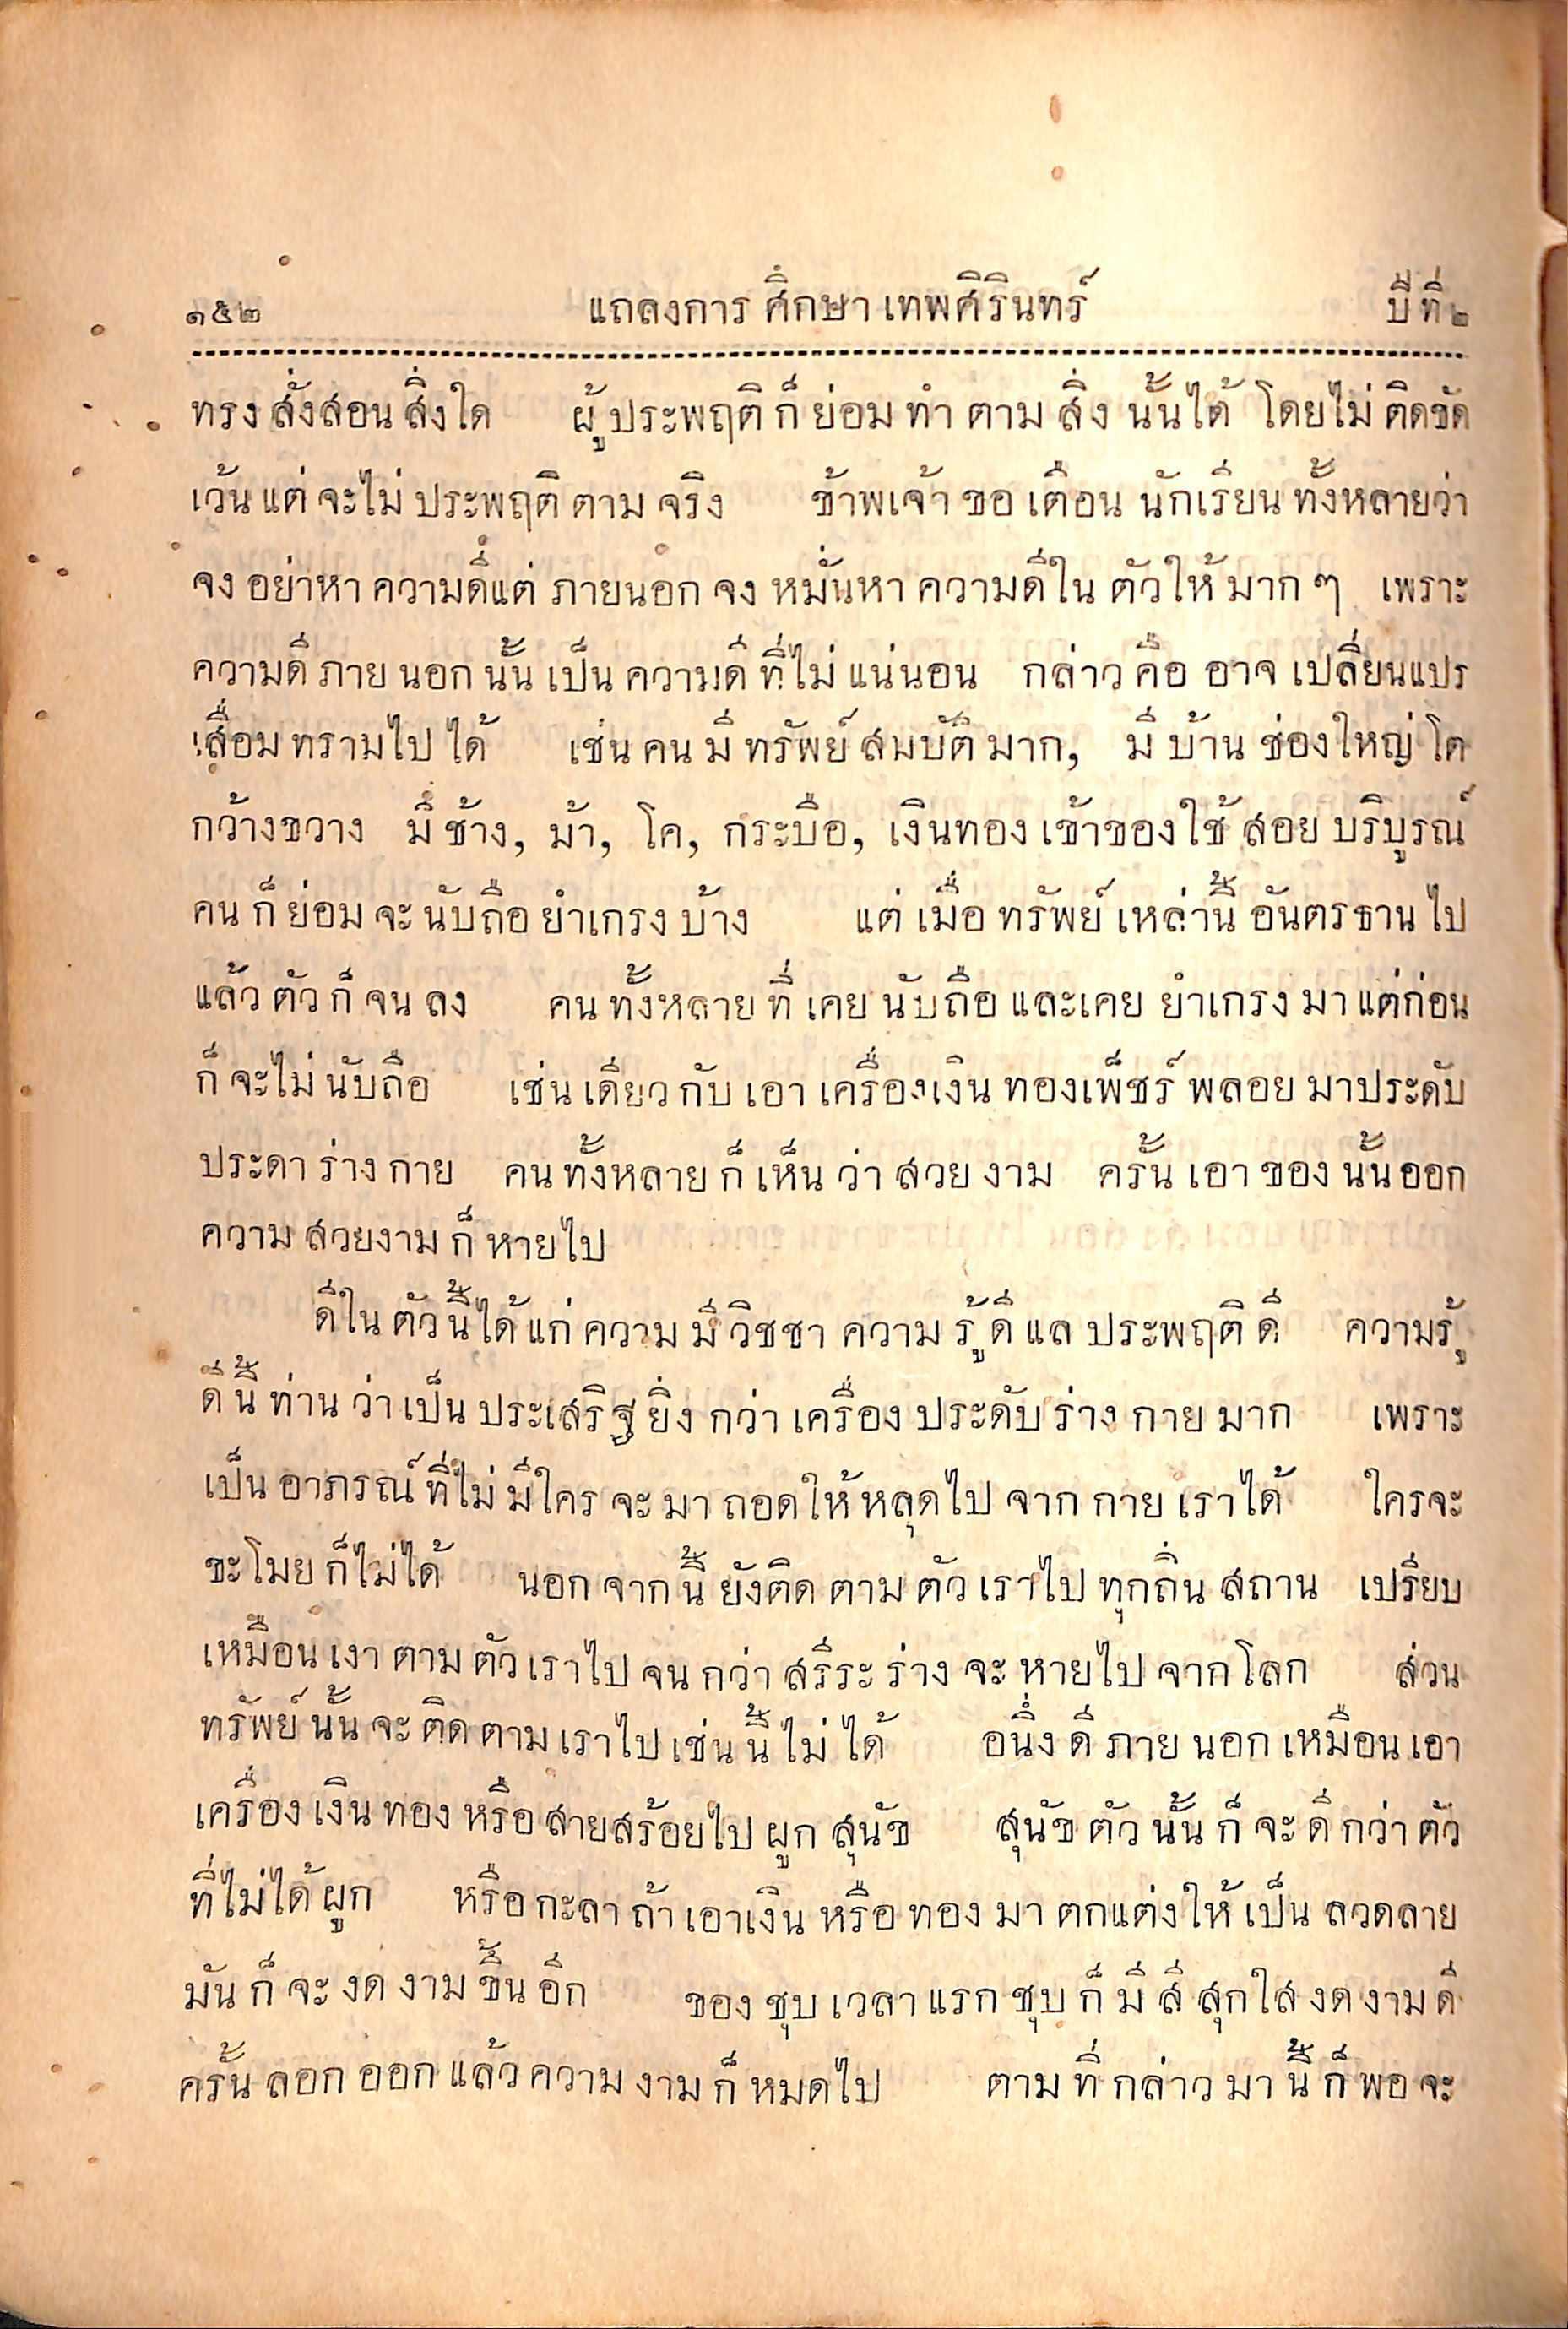 ๑๕๒ แถลงการ ศึกษา เทพศิรินทร์ ปีที่ ๒
ทรง สั่งสอน สิ่งใด ผู้ประพฤติ ก็ ย่อม ทำ ตาม สิ่ง นั้นได้ โดยไม่ ติดขัด
เว้น แต่ จะไม่ ประพฤติ ตาม จริง ข้าพเจ้า ขอ เตือน นักเรียน ทั้งหลายว่า
จง อย่าหา ความดีแต่ ภายนอก จง หมั่นหา ความดีใน ตัวให้ มาก ๆ เพราะ
ความดี ภาย นอก นั้น เป็น ความดี ที่ไม่ แน่นอน กล่าว คือ อาจ เปลี่ยนแปร
เสื่อม ทรามไป ได้ เช่น คน มี ทรัพย์ สมบัติ มาก, มี บ้าน ช่องใหญ่ โต
กว้างขวาง มี ช้าง, ม้า, โค, กระบือ, เงินทอง เข้าของ ใช้ สอย บริบูรณ์
คน ก็ ย่อม จะ นับถือ ยำเกรง บ้าง แต่ เมื่อ ทรัพย์ เหล่านี้ อันตรธาน ไป
แล้ว ตัว ก็ จน ลง คน ทั้งหลาย ที่ เคย นับถือ และเคย ยำเกรง มา แต่ก่อน
ก็ จะไม่ นับถือ เช่น เดียว กับ เอา เครื่องเงิน ทองเพ็ชร์ พลอย มาประดับ
ประดา ร่าง กาย คน ทั้งหลาย ก็ เห็น ว่า สวย งาม ครั้น เอา ของ นั้นออก
ความ สวยงาม ก็ หายไป
ดีใน ตัวนี้ได้ แก่ ความ มี วิชชา ความ รู้ ดี แล ประพฤติ ดี ความรู้
ดี นี้ ท่าน ว่า เป็น ประเสริฐ ยิ่ง กว่า เครื่อง ประดับ ร่าง กาย มาก เพราะ
เป็น อาภรณ์ ที่ไม่ มีใคร จะ มา ถอดให้ หลุดไป จาก กาย เราได้ ใครจะ
ขะโมย ก็ไม่ได้ นอก จาก นี้ ยังติด ตาม ตัว เราไป ทุกถิ่น สถาน เปรียบ
เหมือน เงา ตาม ตัว เราไป จน กว่า สรีระ ร่าง จะ หายไป จาก โลก ส่วน
ทรัพย์ นั้น จะ ติด ตาม เราไป เช่น นี้ ไม่ ได้ อนึ่ง ดี ภาย นอก เหมือน เอา
เครื่อง เงิน ทอง หรือ สายสร้อยไป ผูก สุนัข สุนัข ตัว นั้น ก็ จะ ดี กว่า ตัว
ที่ไม่ได้ ผูก หรือ กะลา ถ้า เอาเงิน หรือ ทอง มา ตกแต่งให้ เป็น ลวดลาย
มัน ก็ จะ งด งาม ขึ้น อีก ของ ชุบ เวลา แรก ชุบ ก็ มี สี สุกใส งด งาม ดี
ครั้น ลอก ออก แล้ว ความ งาม ก็ หมดไป ตาม ที่ กล่าว มา นี้ ก็ พอ จะ